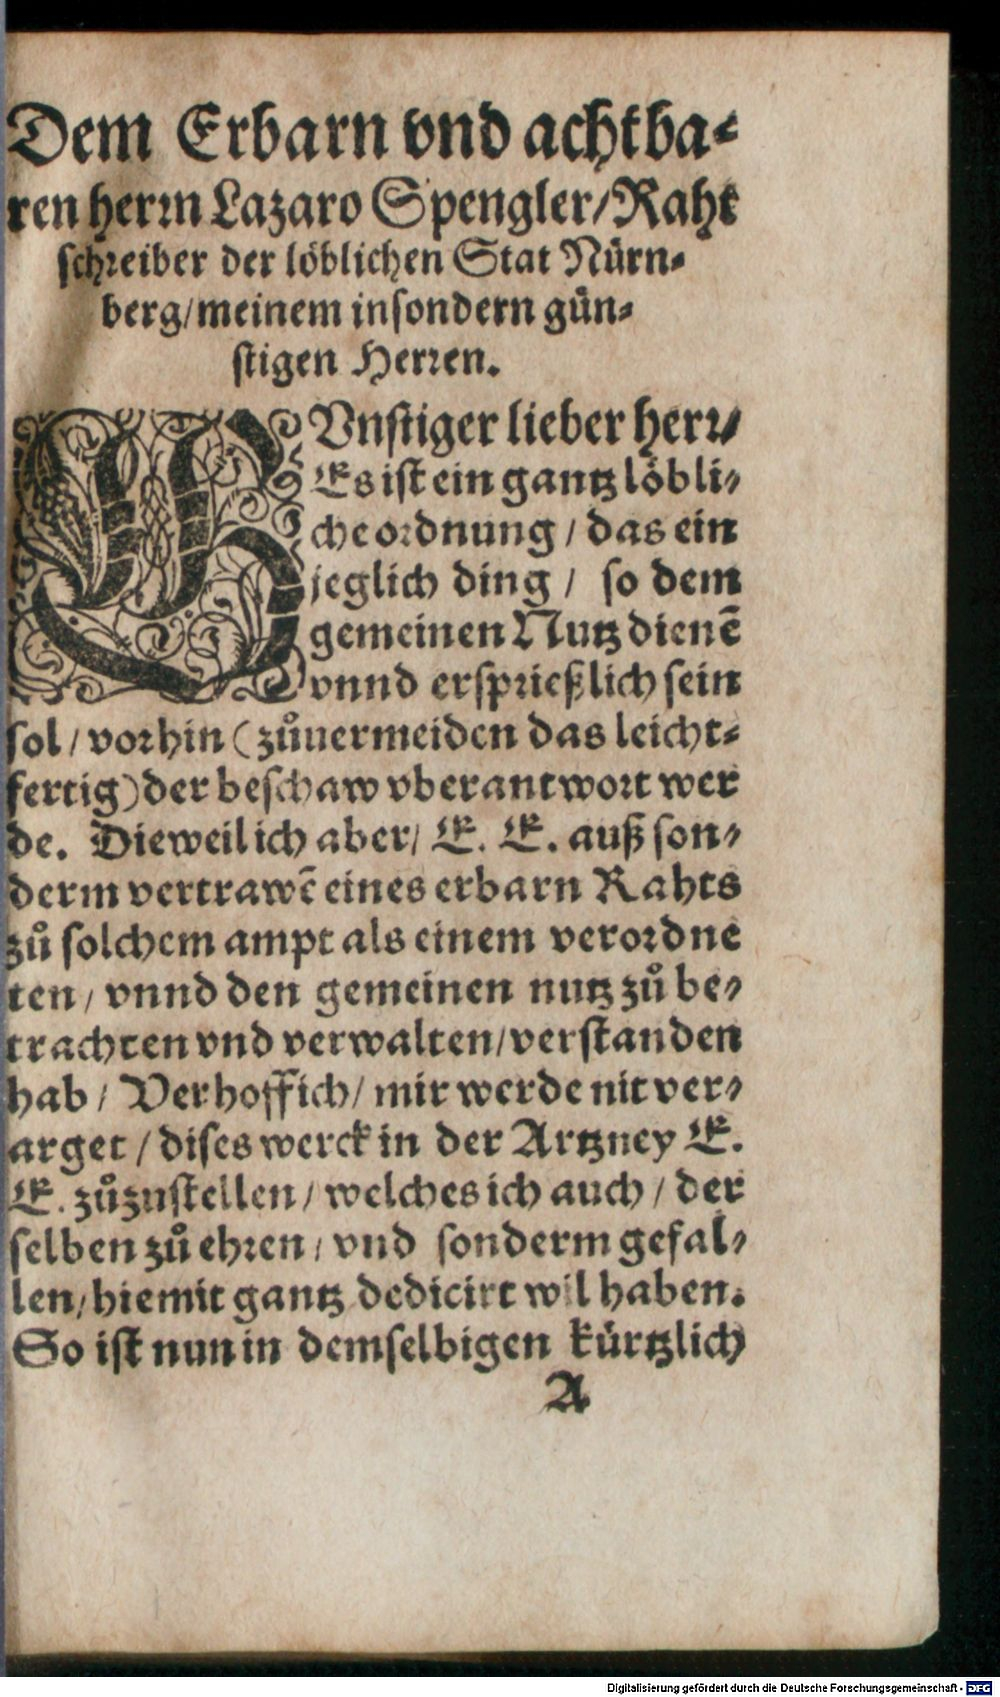 Dem Erbarn vnd achtba⸗
ren herrn Lazaro Spengler/Raht
schreiber der löblichen Stat Nürn⸗
berg/meinem insondern gün⸗
stigen Herren.
GVnstiger lieber herr/
Es ist ein gantz löbli⸗
che ordnung / das ein
jeglich ding / so dem
gemeinen Nutz dienē
vnnd ersprießlich sein
sol / vorhin (zůuermeiden das leicht⸗
fertig) der beschaw vberantwort wer
de. Dieweil ich aber/ E. E. auß son⸗
derm vertrawē eines erbarn Rahts
zů solchem ampt als einem verordne
ten / vnnd den gemeinen nutz zů be⸗
trachten vnd verwalten/verstanden
hab / Verhoff ich/ mir werde nit ver⸗
arget / dises werck in der Artzney E.
E. zůzustellen / welches ich auch / der
selben zů ehren / vnd sonderm gefal⸗
len/hiemit gantz dedicirt wil haben.
So ist nun in demselbigen kürtzlich
A
Digitalisierung gefördert durch die Deutsche Forschungsgemeinschaft - DFG